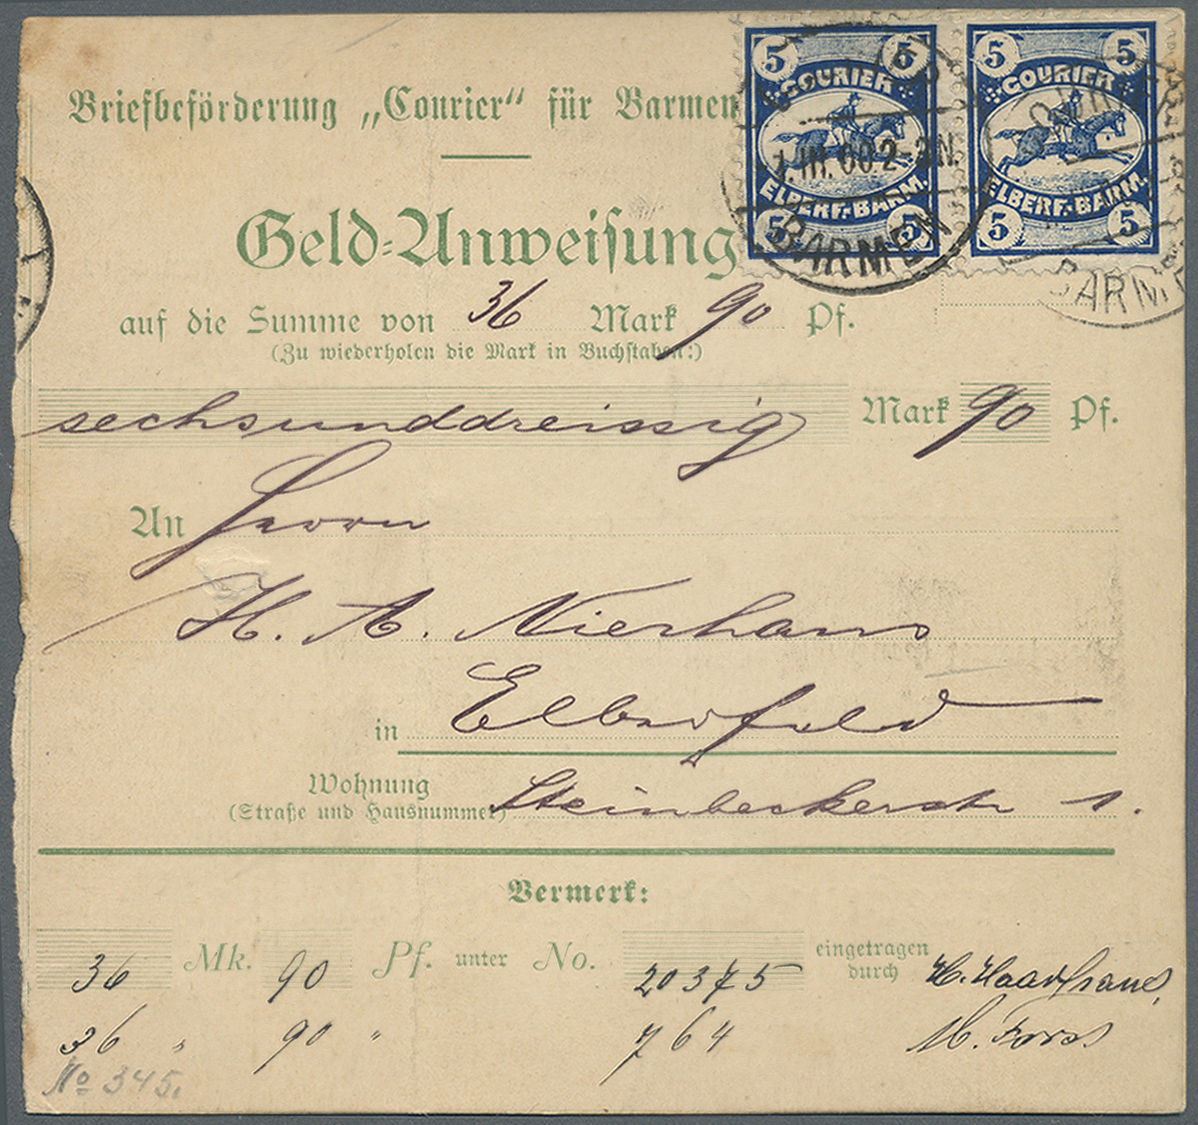 5 5 5 5
COURIER COURIER
ELBERF.-BARM. ELBERF.-BARM.
5 5 5 5
1.III.00 2-3N.
BARMEN
BARM
Briefbeförderung „Courier“ für Barmen
Geld-Anweisung
auf die Summe von 36 Mark 90 Pf.
(Zu wiederholen die Mark in Buchstaben:)
sechsunddreissig Mark 90 Pf.
An Herrn
H. A. Nierhaus
in Elberfeld
Wohnung
(Straße und Hausnummer) Steinbeckerstr 1.
Vermerk:
36 Mk. 90 Pf. unter No. 20375 eingetragen durch H.
36 " 90 " 764 M.
No 345.